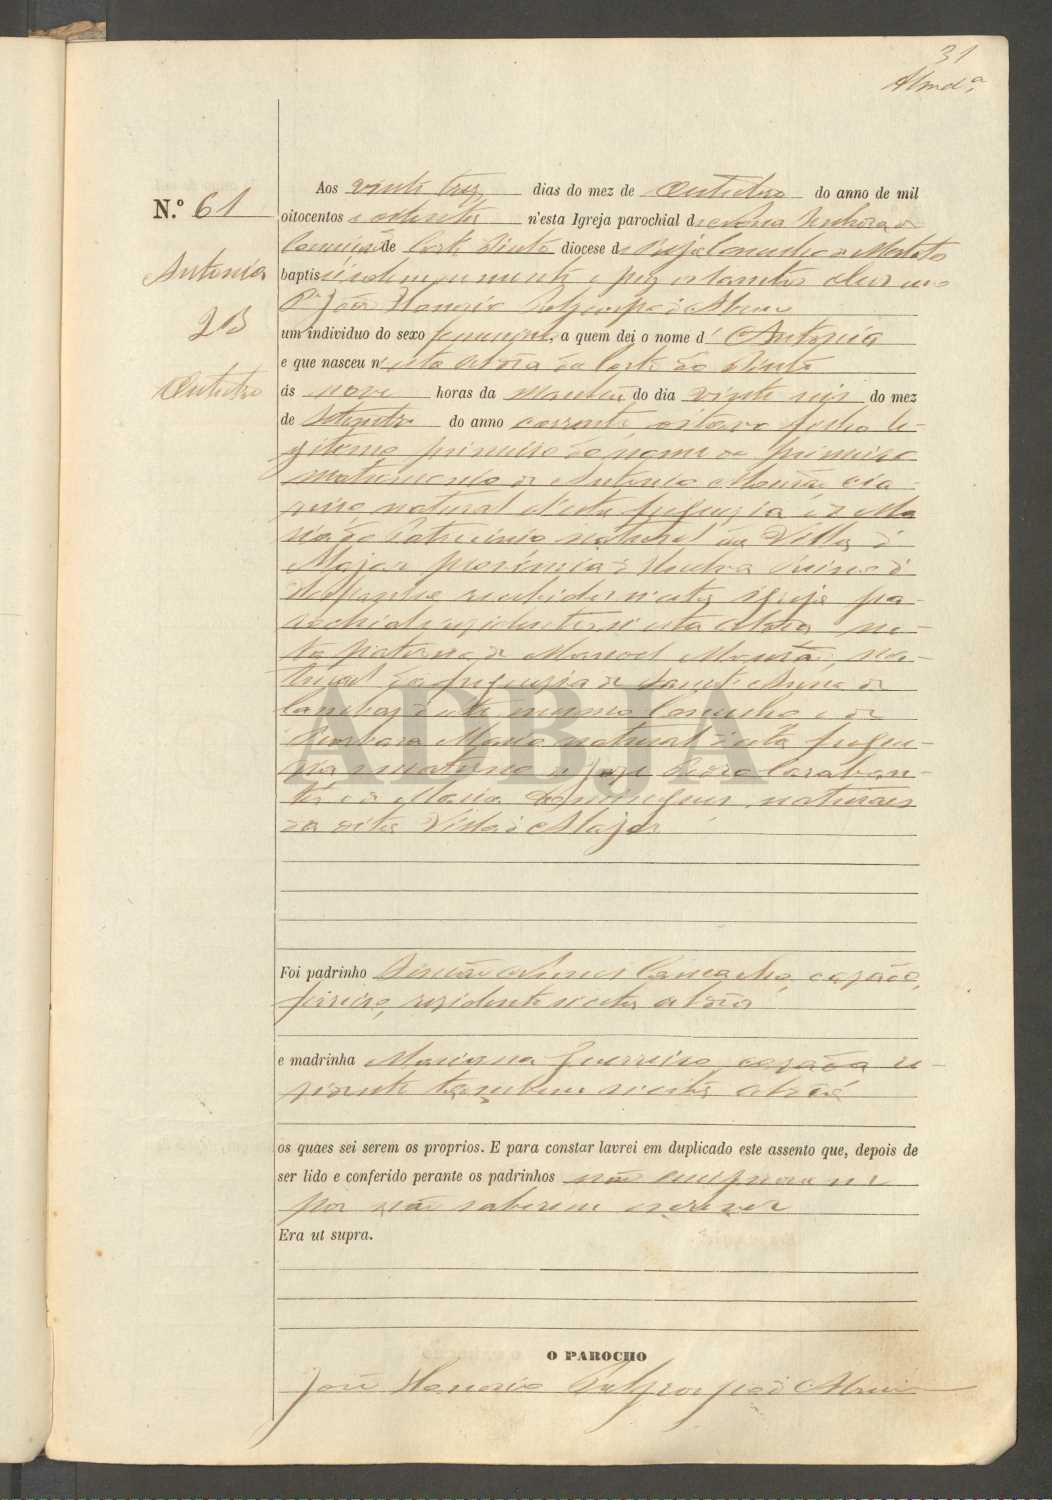 31
Almdª
N.º 61
Antonia
23
Outubro
Aos vinte trez dias do mez de Outubro do anno de mil
oitocentos e oitenta n'esta Igreja parochial de Nossa Senhora da
Conceição de Corte do Pinto diocese de Beja Concelho de Mertola
baptisei solemnemente e puz os santos oleos eu o
Pe João Honorio d'Abreu
um individuo do sexo femenino, a quem dei o nome d' Antonia
e que nasceu n'esta aldeia da Corte do Pinto
ás nove horas da manhã do dia vinte seis do mez
de Setembro do anno corrente, oitavo filho le-
gitimo primeiro do nome do primeiro
matrimonio de Antonio Mourão
natural d'esta freguezia e de Ma
ria do Patrocinio natural da Villa d'
provincia d' Huelva Reino d'
Hespanha recebidos n'esta igreja pa-
rochial e rezidentes n'esta aldeia ne-
ta paterna de Manoel Mourão, na-
tural da freguezia de Sant'Anna de
Cambas d'este mesmo Concelho e de
Barbara Maria natural d'esta fregue-
zia e materna de José
e de Maria Domingues, naturaes
da dita Villa d'
Foi padrinho Simão Camacho, cazado,
rezidente n'esta aldeia
e madrinha Marianna Guerreiro, cazada re-
zidente tambem n'esta aldeia
os quaes sei serem os proprios. E para constar lavrei em duplicado este assento que, depois de
ser lido e conferido perante os padrinhos não assignaram
por não saberem escrever
Era ut supra.
O PAROCHO
João Honorio d'Abreu
ADBJA